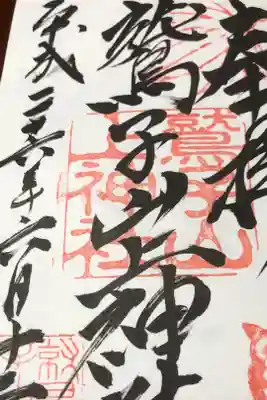 奉拝
鷲子山上神社
平成二十六年六月十
鷲子山
上神社